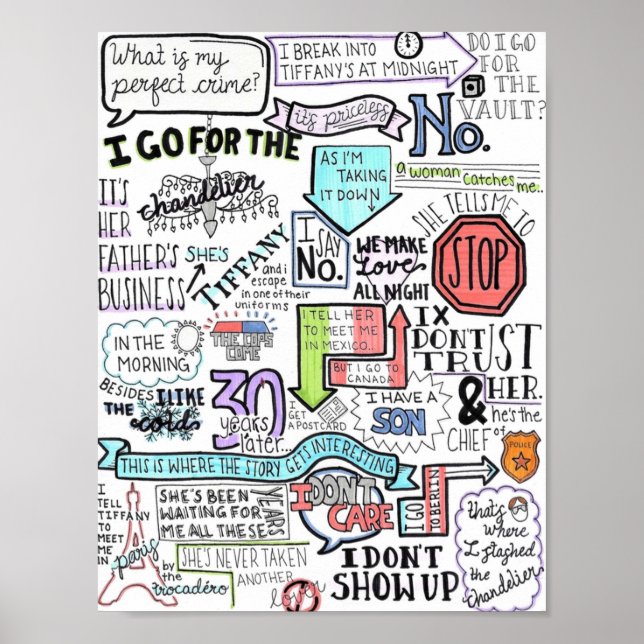 What is my
perfect crime?
I BREAK INTO
TIFFANY'S AT MIDNIGHT
DO I GO
FOR
THE
VAULT?
NO.
it's priceless
I GO FOR THE
chandelier
AS I'M
TAKING
IT DOWN
a WOMAN catches
me..
IT'S
HER
FATHER'S
BUSINESS
SHE'S
TIFFANY
I
SAY
NO.
WE MAKE
love
ALL NIGHT
SHE TELLS ME TO
STOP
and i
escape
in one of their
uniforms
IN THE
MORNING
THE COPS
COME
I TELL HER
TO MEET ME
IN MEXICO..
BUT I GO TO
CANADA
I
DON'T
TRUST
HER.
BESIDES I LIKE
THE cold
30
years
later...
I
GET
A POSTCARD
I HAVE A
SON
&
he's the
CHIEF of
POLICE
THIS IS WHERE THE STORY GETS INTERESTING
I
TELL
TIFFANY
TO
MEET
ME
IN
paris
by
the
trocadéro
SHE'S BEEN
WAITING FOR
ME ALL THESE
YEARS
SHE'S NEVER TAKEN
ANOTHER
lover
I DON'T
CARE
I DON'T
SHOW UP
I GO
TO BERLIN
that's
where
I stashed
the
chandelier